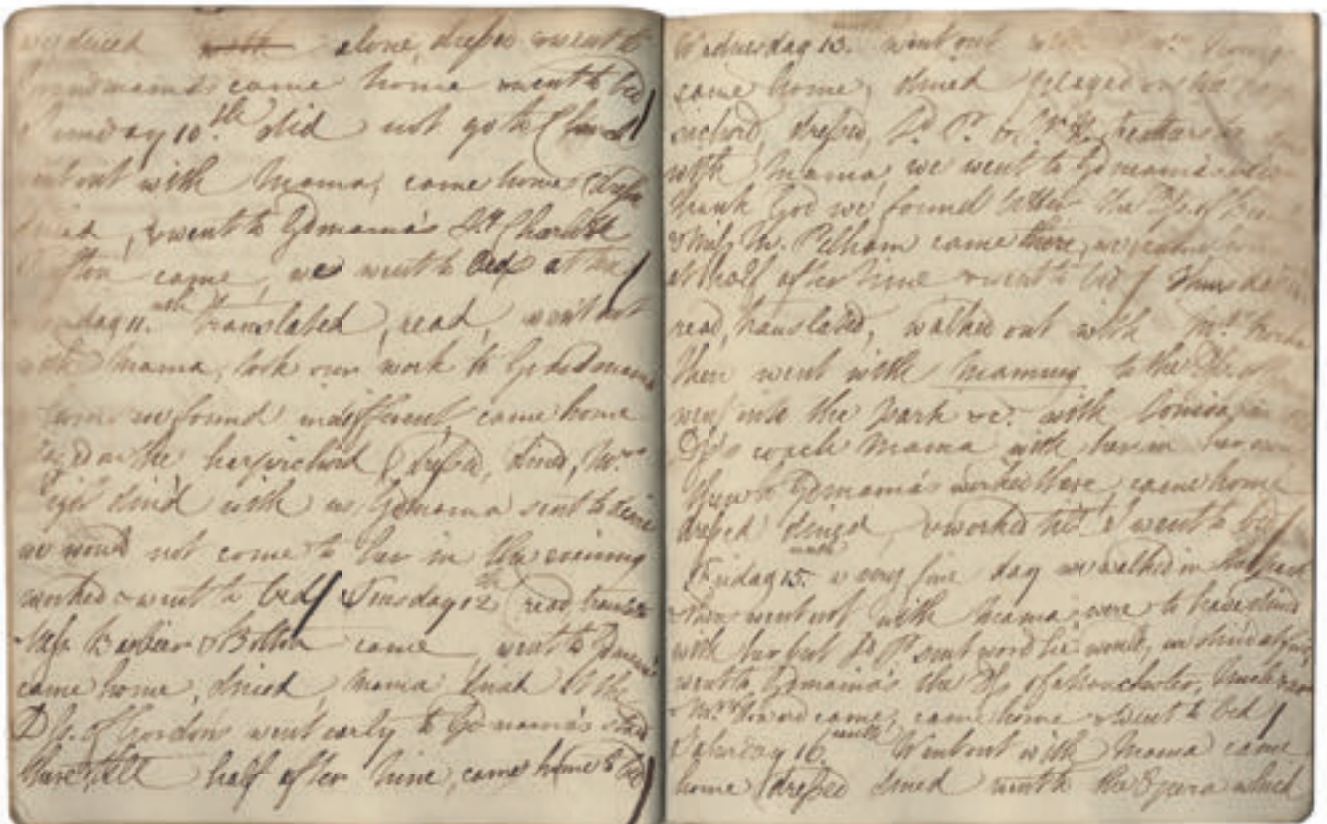 we dined alone, dressed & went to
Grandmama's came home & went to bed
Sunday 10th did not go to Church
went out with Mama, came home, dress
dined, & went to Gdmama's Ly Charlotte
came, we went to bed at ten
Monday 11. translated, read, went out
with Mama, took our work to Grandmama
whom we found indifferent, came home
played on the harpsichord, dressed, dined, Mrs
dined with us, Gdmama sent to desire
we would not come to her in the evening
worked & went to bed Tuesday 12th read translated
& Bolton came, went to Gdmama's
came home, dined, Mama dined at the
Ds. of Gordon's went early to Gdmama's staid
there till half after nine, came home to bed
Wednesday 13. went out
came home, dined played on the
dressed, Ld. P. &
with Mama, we went to Gdmama's
thank God we found better the Ds. of
& Miss M. Pelham came there, we came home
at half after nine & went to bed Thursday
read, translated, walked out with Mrs.
then went with Mama to the
went into the park &c. with Louisa in
Ds's coach Mama with her in her own
then to Gdmama's worked there came home
dressed dined, & worked till I went to bed
Friday 15. a very fine day we walked in
then went out with Mama, were to have dined
with her but Ld P. sent word he would, we dined at four
went to Gdmama's the Ds of Manchester,
Mrs Howard came, came home & went to bed
Saturday 16. Went out with Mama came
home dressed dined went to the Opera which